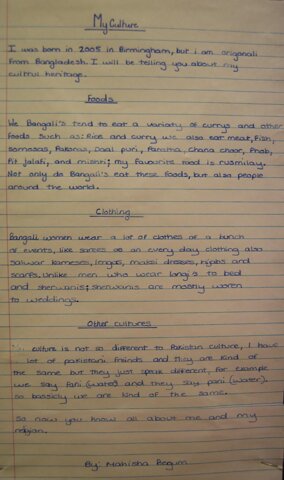 My Culture
I was born in 2005 in Birmingham, but i am origonali
from Bangladesh. I will be telling you about my
cultrul heritage.
Foods
We Bangali's tend to eat a variaty of currys and other
foods such as: Rice and curry we also eat meat, Fish,
Somosas, Pakoras, Daal puri, Paratha, Chana choor, Phab,
Pit Jalafi, and mishti; my favourite food is rusmilay.
Not only do Bangali's eat these foods, but also people
around the world.
Clothing
Bangali women wear a lot of clothes at a bunch
of events, like sarees as an every day clothing also
Salwar kameses, longas, maksi dresses, hijabs and
scarfs. Unlike men who wear longi's to bed
and sherwanis; sherwanis are mostly worn
to weddings.
Other cultures
culture is not so different to Pakistan culture, I have
lot of pakistani friends and they are kind of
the same but they just speak different, for example
we say Fani (water) and they say pani (water).
so bassicly we are kind of the same.
So now you know all about me and my
religion.
By: Mahisha Begum